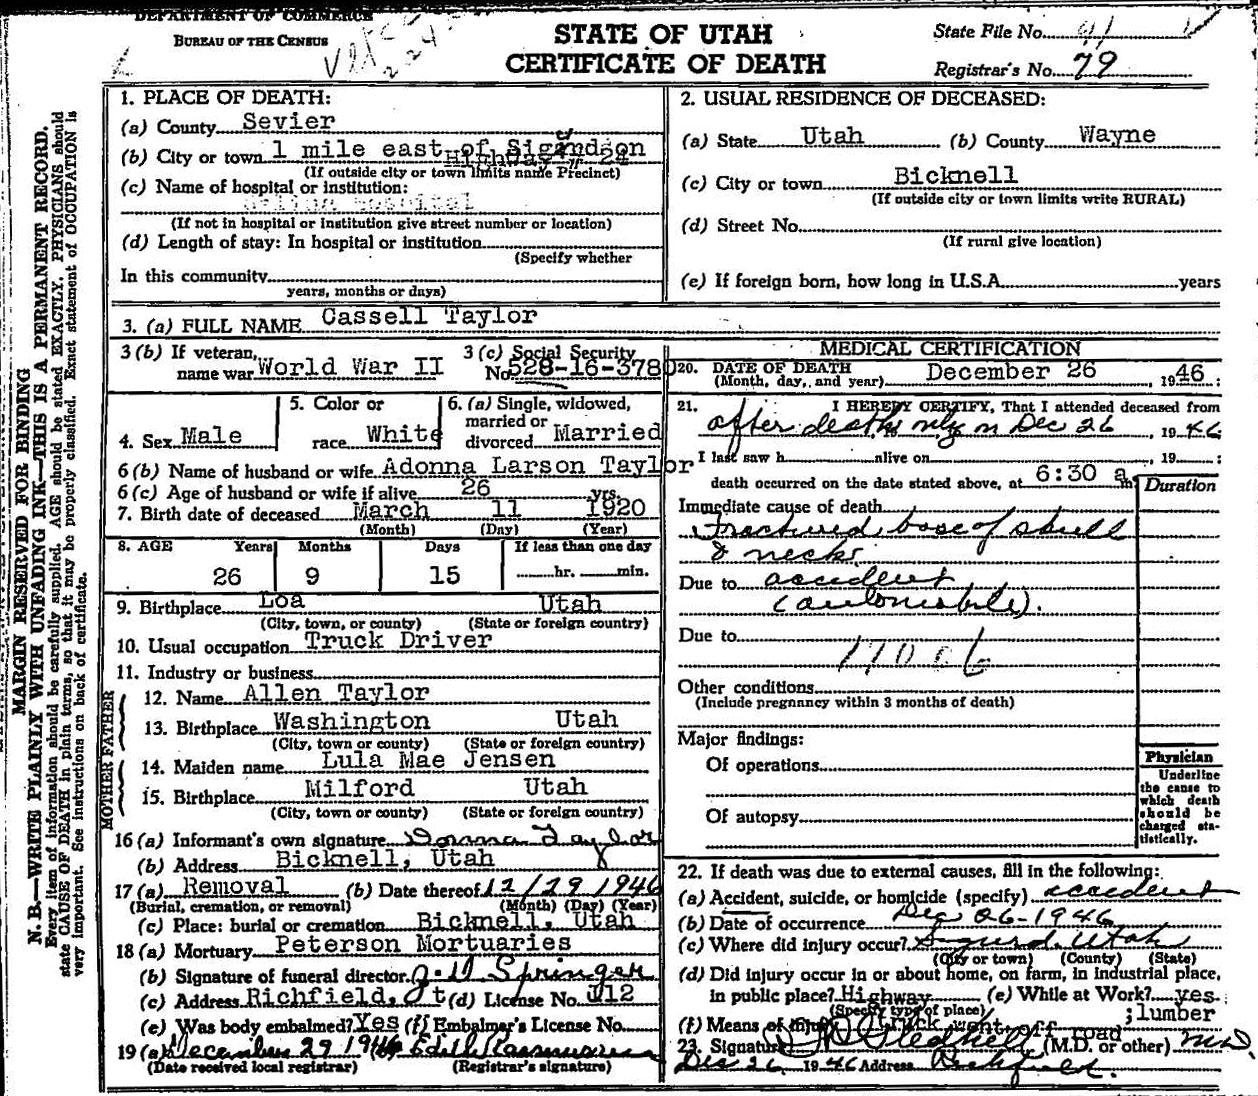 DEPARTMENT OF COMMERCE
BUREAU OF THE CENSUS
STATE OF UTAH
CERTIFICATE OF DEATH
State File No.
Registrar's No. 79
MARGIN RESERVED FOR BINDING
N. B.—WRITE PLAINLY WITH UNFADING INK—THIS IS A PERMANENT RECORD.
Every item of information should be carefully supplied. AGE should be stated EXACTLY. PHYSICIANS should
state CAUSE OF DEATH in plain terms, so that it may be properly classified. Exact statement of OCCUPATION is
very important. See instructions on back of certificate.
1. PLACE OF DEATH:
(a) County Sevier
(b) City or town 1 mile east of
Highway 24
(If outside city or town limits name Precinct)
(c) Name of hospital or institution:
hospital
(If not in hospital or institution give street number or location)
(d) Length of stay: In hospital or institution
(Specify whether
In this community
years, months or days)
2. USUAL RESIDENCE OF DECEASED:
(a) State Utah (b) County Wayne
(c) City or town Bicknell
(If outside city or town limits write RURAL)
(d) Street No.
(If rural give location)
(e) If foreign born, how long in U.S.A. years
3. (a) FULL NAME Cassell Taylor
3 (b) If veteran, name war World War II
3 (c) Social Security No. 528-16-3780
4. Sex Male
5. Color or race White
6. (a) Single, widowed, married or divorced Married
6 (b) Name of husband or wife Adonna Larson Taylor
6 (c) Age of husband or wife if alive 26 yrs.
7. Birth date of deceased March 11 1920
(Month) (Day) (Year)
8. AGE Years Months Days If less than one day
26 9 15 hr. min.
9. Birthplace Loa Utah
(City, town, or county) (State or foreign country)
10. Usual occupation Truck Driver
11. Industry or business
FATHER
12. Name Allen Taylor
13. Birthplace Washington Utah
(City, town or county) (State or foreign country)
MOTHER
14. Maiden name Lula Mae Jensen
15. Birthplace Milford Utah
(City, town or county) (State or foreign country)
16 (a) Informant's own signature Donna Taylor
(b) Address Bicknell, Utah
17 (a) Removal (b) Date thereof 12/29 1946
(Burial, cremation, or removal) (Month) (Day) (Year)
(c) Place: burial or cremation Bicknell, Utah
18 (a) Mortuary Peterson Mortuaries
(b) Signature of funeral director Springer
(c) Address Richfield, Ut (d) License No. 112
(e) Was body embalmed? Yes (f) Embalmer's License No.
19 (a) December 29 1946 (b) Edith Rasmussen
(Date received local registrar) (Registrar's signature)
MEDICAL CERTIFICATION
20. DATE OF DEATH
(Month, day, and year) December 26 1946 ;
21. I HEREBY CERTIFY, That I attended deceased from
after death only on Dec 26, 1946
I last saw h alive on 19 ;
death occurred on the date stated above, at 6:30 a m
Duration
Immediate cause of death
Fractured base of skull
& neck.
Due to accident
(automobile).
Due to
Other conditions
(Include pregnancy within 3 months of death)
Major findings:
Of operations
Of autopsy
Physician
Underline the cause to which death should be charged statistically.
22. If death was due to external causes, fill in the following:
(a) Accident, suicide, or homicide (specify) accident
(b) Date of occurrence Dec 26-1946
(c) Where did injury occur? Sigurd. Utah
(City or town) (County) (State)
(d) Did injury occur in or about home, on farm, in industrial place,
in public place? Highway (e) While at Work? yes
(Specify type of place)
(f) Means of injury Truck went off road ;lumber
23. Signature (M.D. or other) MD.
Dec 26 1946 Address Richfield.